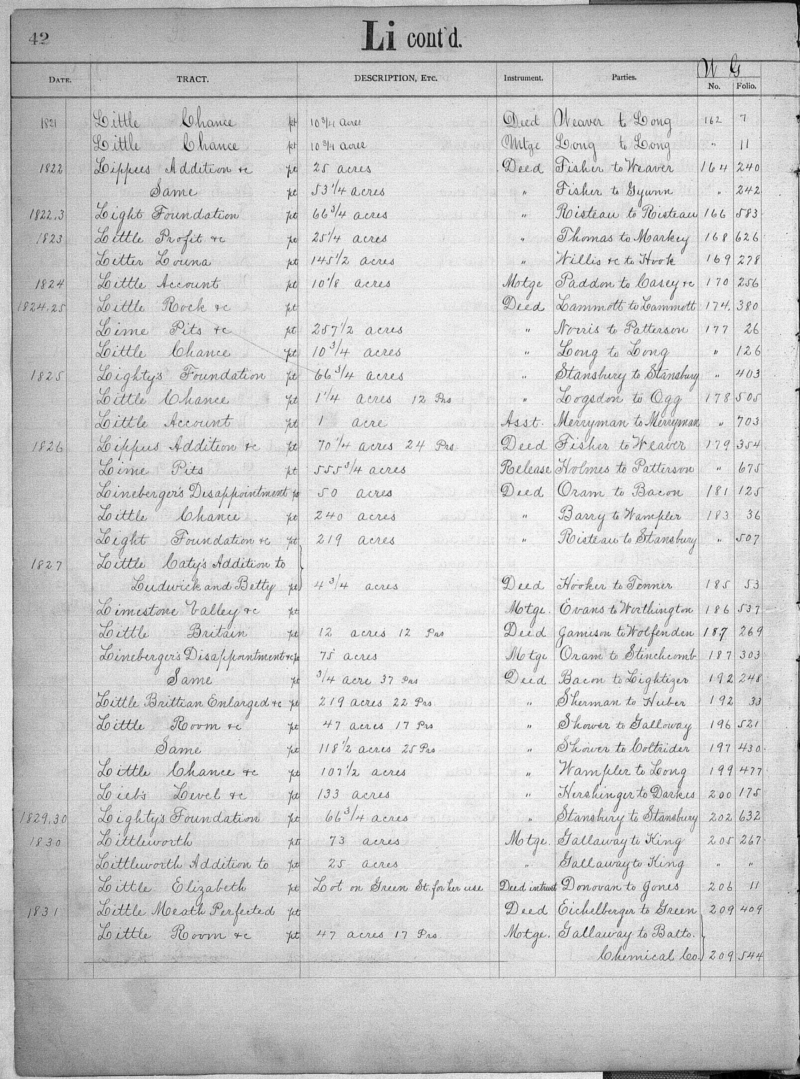 42 Li cont'd.
W G
DATE. TRACT. DESCRIPTION, ETC. Instrument. Parties. No. Folio.
1821 Little Chance pt 10 3/4 acres Deed Weaver to Long 162 7
Little Chance pt 10 3/4 acres Mtge Long to Long " 11
1822 Lippus Addition &c pt 25 acres Deed Fisher to Weaver 164 240
Same pt 53 1/4 acres " Fisher to Gywnn " 242
1822,3 Light Foundation pt 66 3/4 acres " Risteau to Risteau 166 583
1823 Little Profit &c pt 25 1/4 acres " Thomas to Markey 168 626
Litter Louna pt 145 1/2 acres " Willis &c to Hook 169 278
1824 Little Account pt 10 1/8 acres Motge Paddon to Casey &c 170 256
1824,25 Little Rock &c pt Deed Lammott to Lammott 174 380
Lime Pits &c pt 257 1/2 acres " Norris to Patterson 177 26
Little Chance pt 10 3/4 acres " Long to Long " 126
1825 Lighty's Foundation pt 66 3/4 acres " Stansbury to Stansbury " 403
Little Chance pt 1 1/4 acres 12 Prs " Logsdon to Ogg 178 505
Little Account pt 1 acre Asst. Merryman to Merryman " 703
1826 Lippus Addition &c pt 70 1/4 acres 24 Prs Deed Fisher to Weaver 179 354
Lime Pits pt 555 3/4 acres Release Holmes to Patterson " 675
Lineberger's Disappointment pt 50 acres Deed Oram to Bacon 181 125
Little Chance pt 240 acres " Barry to Wampler 183 36
Light Foundation &c pt 219 acres " Risteau to Stansbury " 507
1827 Little Caty's Addition to
Ludwick and Betty pt 4 3/4 acres Deed Hooker to Tenner 185 53
Limestone Valley &c pt Mtge. Evans to Worthington 186 537
Little Britain pt 12 acres 12 Prs Deed Jamison to Wolfenden 187 269
Lineberger's Disappointment &c pt 75 acres Motge Oram to Stinchcomb 187 303
Same pt 3/4 acre 37 Prs Deed Bacon to Lightizer 192 248
Little Brittian Enlarged &c pt 219 acres 22 Prs " Sherman to Huber 192 33
Little Room &c pt 47 acres 17 Prs " Shower to Galloway 196 521
Same pt 118 1/2 acres 25 Prs " Shower to Coltrider 197 430
Little Chance &c pt 107 1/2 acres " Wampler to Long 199 477
Lieb's Level &c pt 133 acres " Hershinger to Darkis 200 175
1829,30 Lighty's Foundation pt 66 3/4 acres " Stansbury to Stansbury 202 632
1830 Littleworth pt 73 acres Motge Gallaway to King 205 267
Littleworth Addition to pt 25 acres " Gallaway to King " "
Little Elizabeth pt Lot on Green St. for her use Deed in trust Donovan to Jones 206 11
1831 Little Meath Perfected pt Deed Eichelberger to Green 209 409
Little Room &c pt 47 acres 17 Prs. Motge. Gallaway to Balto.
Chemical Co. 209 544